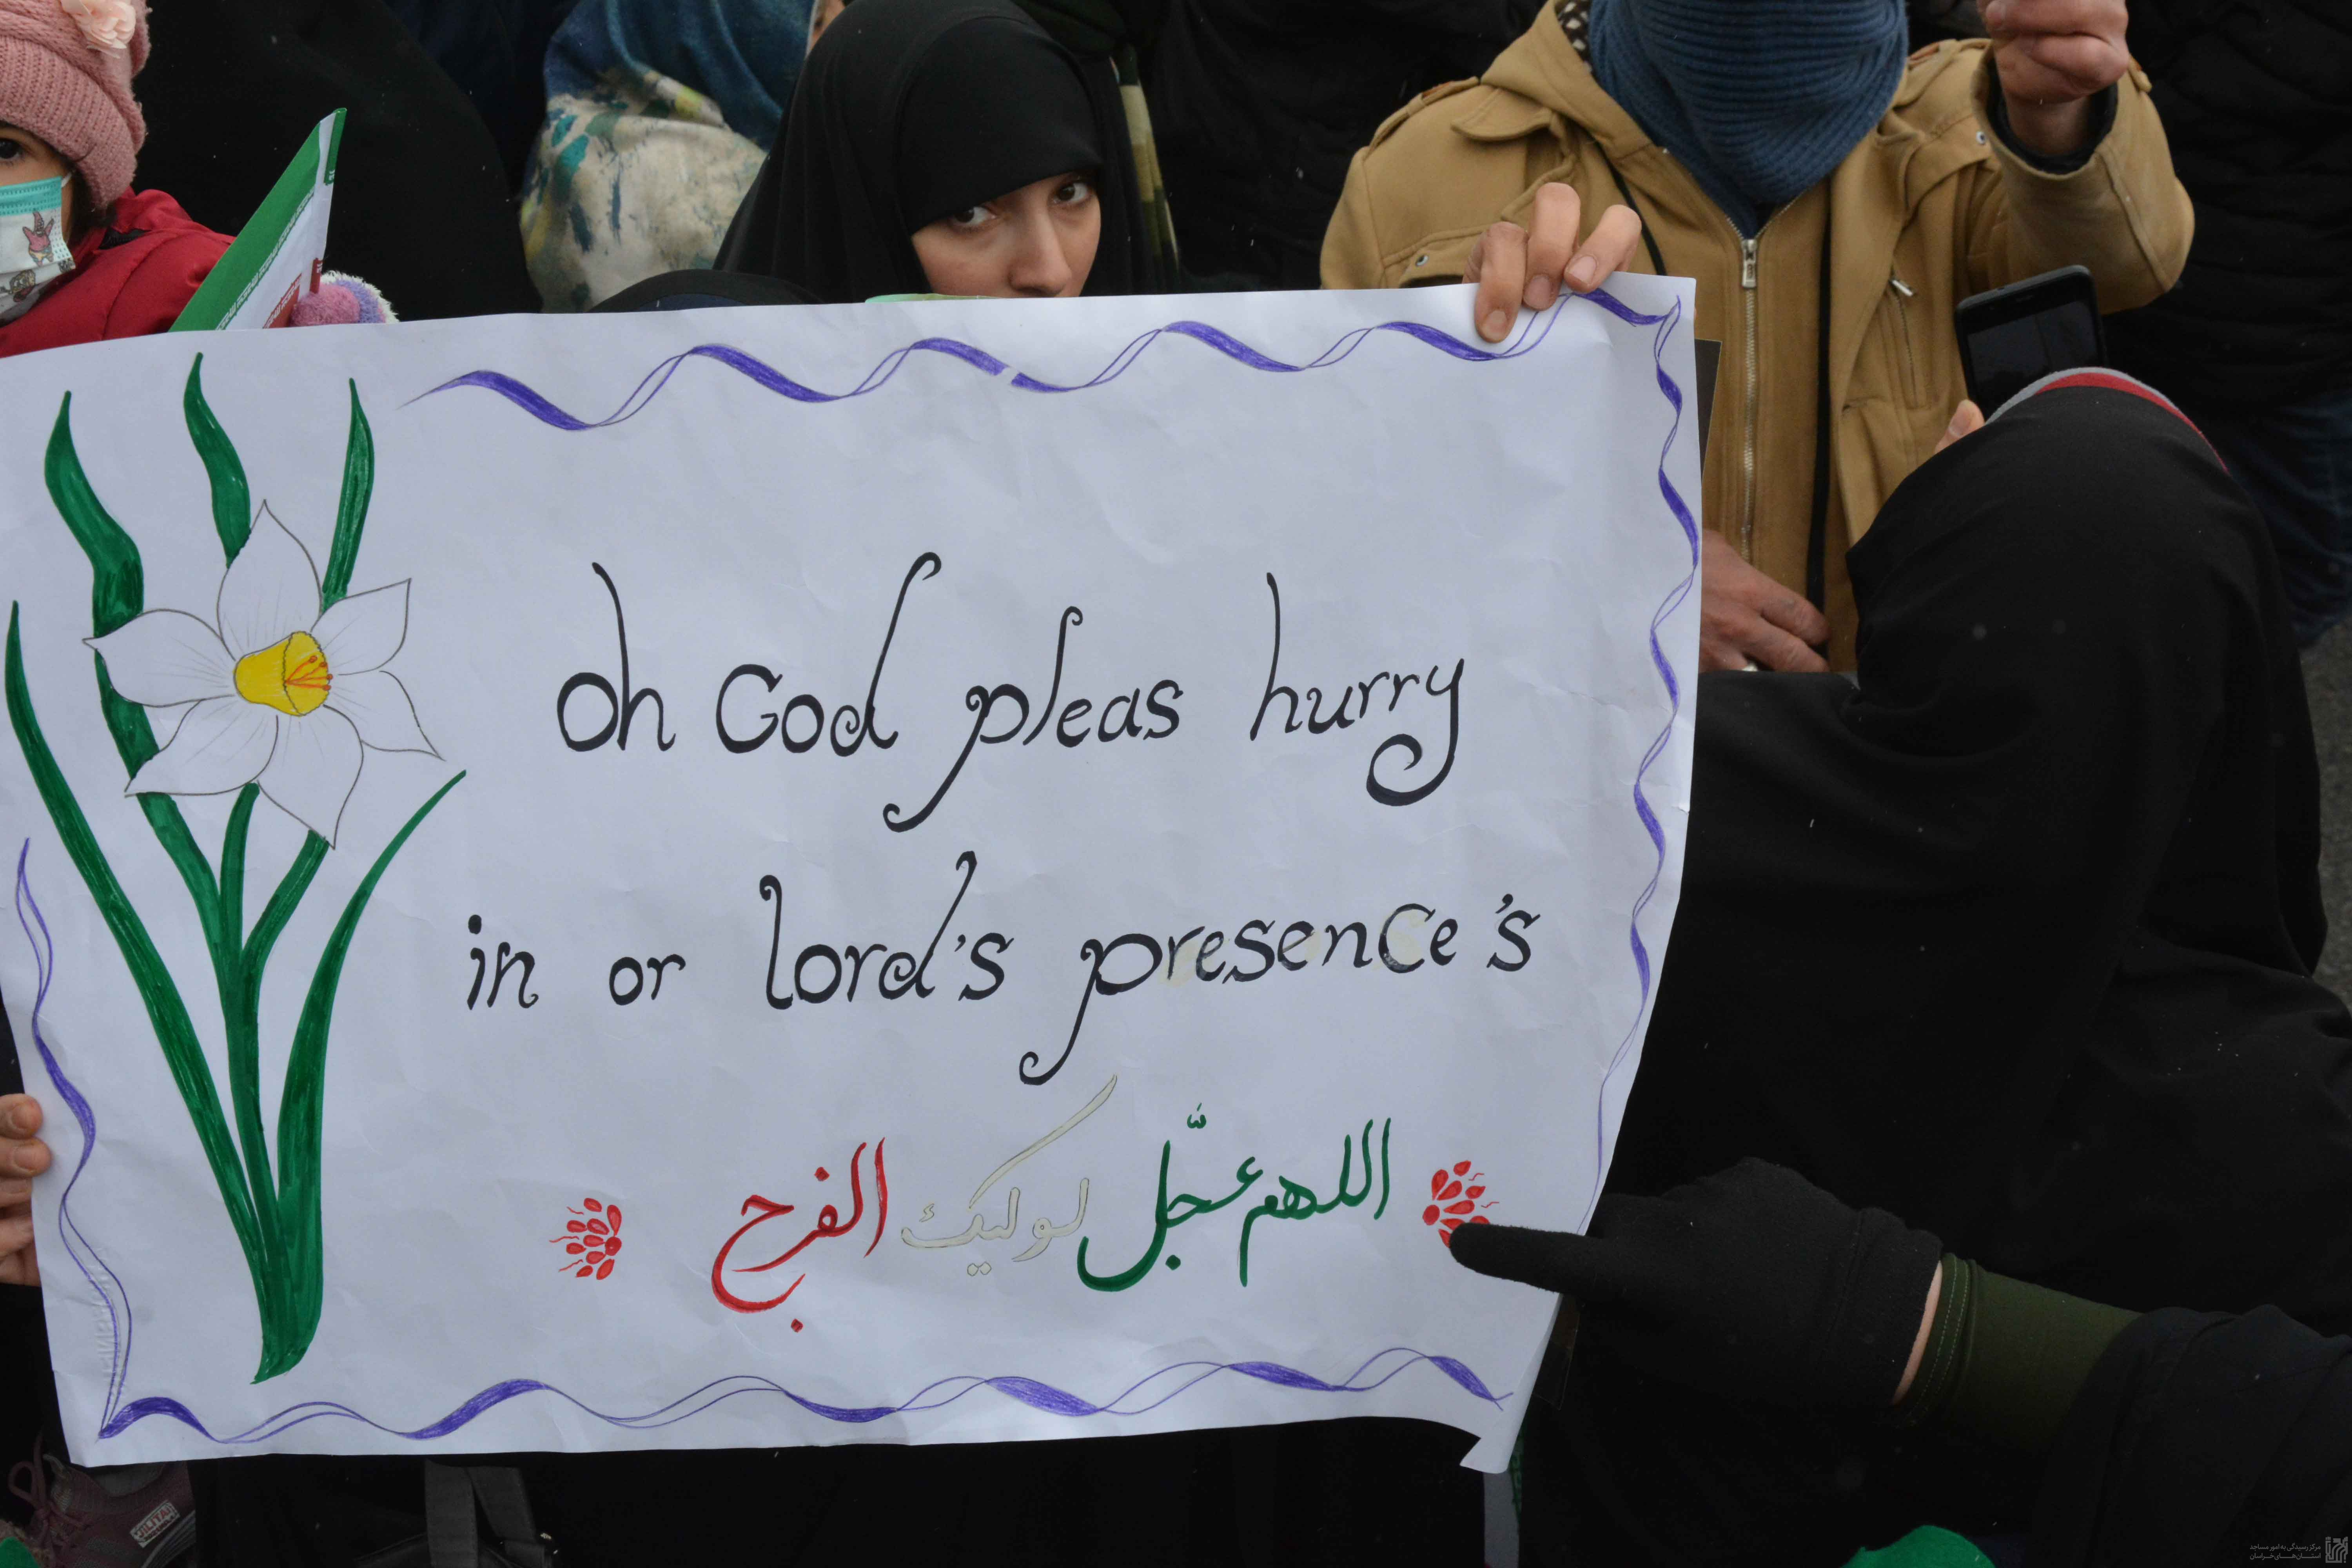 oh God pleas hurry
in or lord's presence's
اللهم عجّل لوليك الفرج
مرکز رسیدگی به امور مساجد
استان‌های خراسان